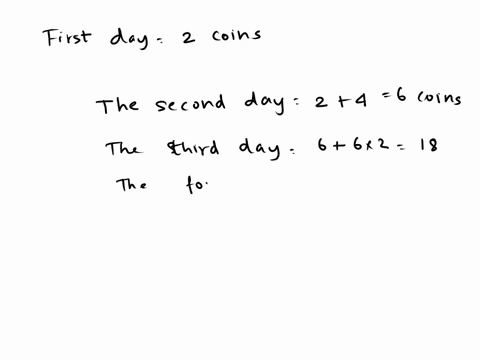 First day = 2 coins
The second day = 2 + 4 = 6 coins
The third day = 6 + 6 × 2 = 18
The fo